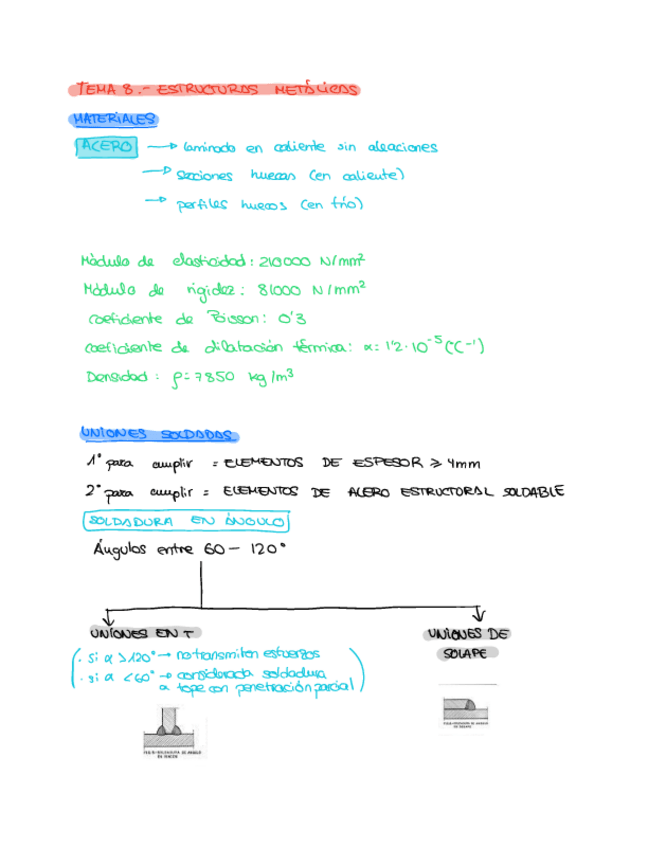 TEMA 8.- ESTRUCTURAS METÁLICAS
MATERIALES
ACERO → laminado en caliente sin aleaciones
→ secciones huecas (en caliente)
→ perfiles huecos (en frío)
Módulo de elasticidad: 210000 N/mm²
Módulo de rigidez: 81000 N/mm²
coeficiente de Poisson: 0'3
coeficiente de dilatación térmica: α: 1'2·10⁻⁵ (°C⁻¹)
Densidad: ρ=7850 kg/m³
UNIONES SOLDADAS
1° para cumplir = ELEMENTOS DE ESPESOR ≥ 4mm
2° para cumplir = ELEMENTOS DE ACERO ESTRUCTURAL SOLDABLE
SOLDADURA EN ÁNGULO
Ángulos entre 60 - 120°
UNIONES EN T
UNIONES DE
SOLAPE
· Si α > 120° → no transmiten esfuerzos
· si α < 60° → considerada soldadura
a tope con penetración parcial